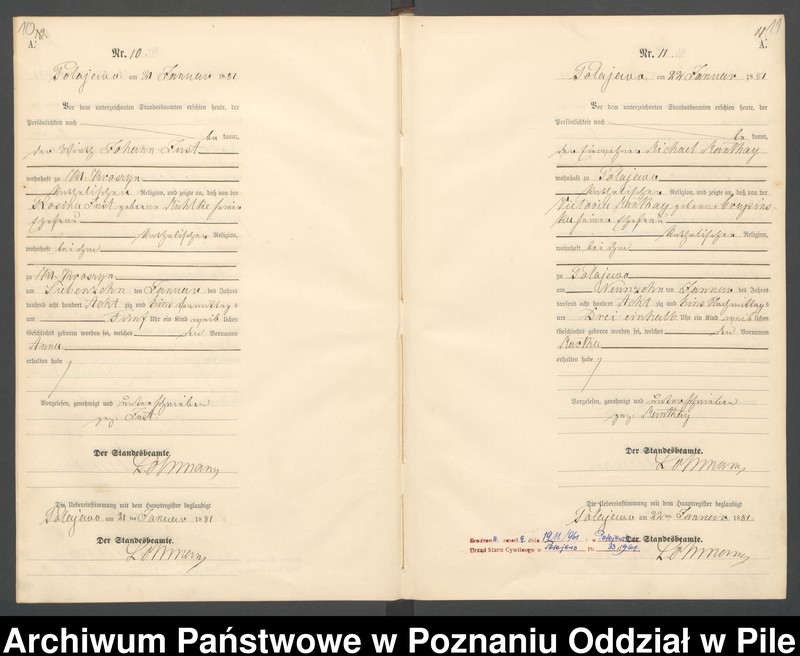 10
A.
Nr. 10.
Polajewo am 21 Januar 1881
Vor dem unterzeichneten Standesbeamten erschien heute, der
Persönlichkeit nach
be kannt,
der Wirth Johann Fust
wohnhaft zu
katholischer Religion, und zeigte an, daß von der
Fust geborene seiner
Ehefrau
katholischer Religion,
wohnhaft bei ihm
zu
am Siebenzehn ten Januar des Jahres
tausend acht hundert Acht zig und Eins Vormittags
um Fünf Uhr ein Kind weib lichen
Geschlechts geboren worden sei, welches den Vornamen
Anna
erhalten habe
Vorgelesen, genehmigt und unterschrieben
gez. Fust
Der Standesbeamte.
Lohmann
Die Uebereinstimmung mit dem Hauptregister beglaubigt
Polajewo am 21 ten Januar 1881
Der Standesbeamte.
Lohmann
11
A.
Nr. 11.
Polajewo am 22 Januar 1881
Vor dem unterzeichneten Standesbeamten erschien heute, der
Persönlichkeit nach
be kannt,
der Einwohner Michael
wohnhaft zu Polajewo
katholischer Religion, und zeigte an, daß von der
Victoria geborene
seiner Ehefrau
katholischer Religion,
wohnhaft bei ihm
zu Polajewo
am Neunzehn ten Januar des Jahres
tausend acht hundert Acht zig und Eins Nachmittags
um Drei einhalb Uhr ein Kind weib lichen
Geschlechts geboren worden sei, welches den Vornamen
Martha
erhalten habe
Vorgelesen, genehmigt und unterschrieben
gez.
Der Standesbeamte.
Lohmann
Die Uebereinstimmung mit dem Hauptregister beglaubigt
Polajewo am 22 ten Januar 1881
Der Standesbeamte.
Lohmann
dnia 19.11.1961 w Połajewo
Urząd Stanu Cywilnego w Połajewo Nr. 33/1961
Archiwum Państwowe w Poznaniu Oddział w Pile